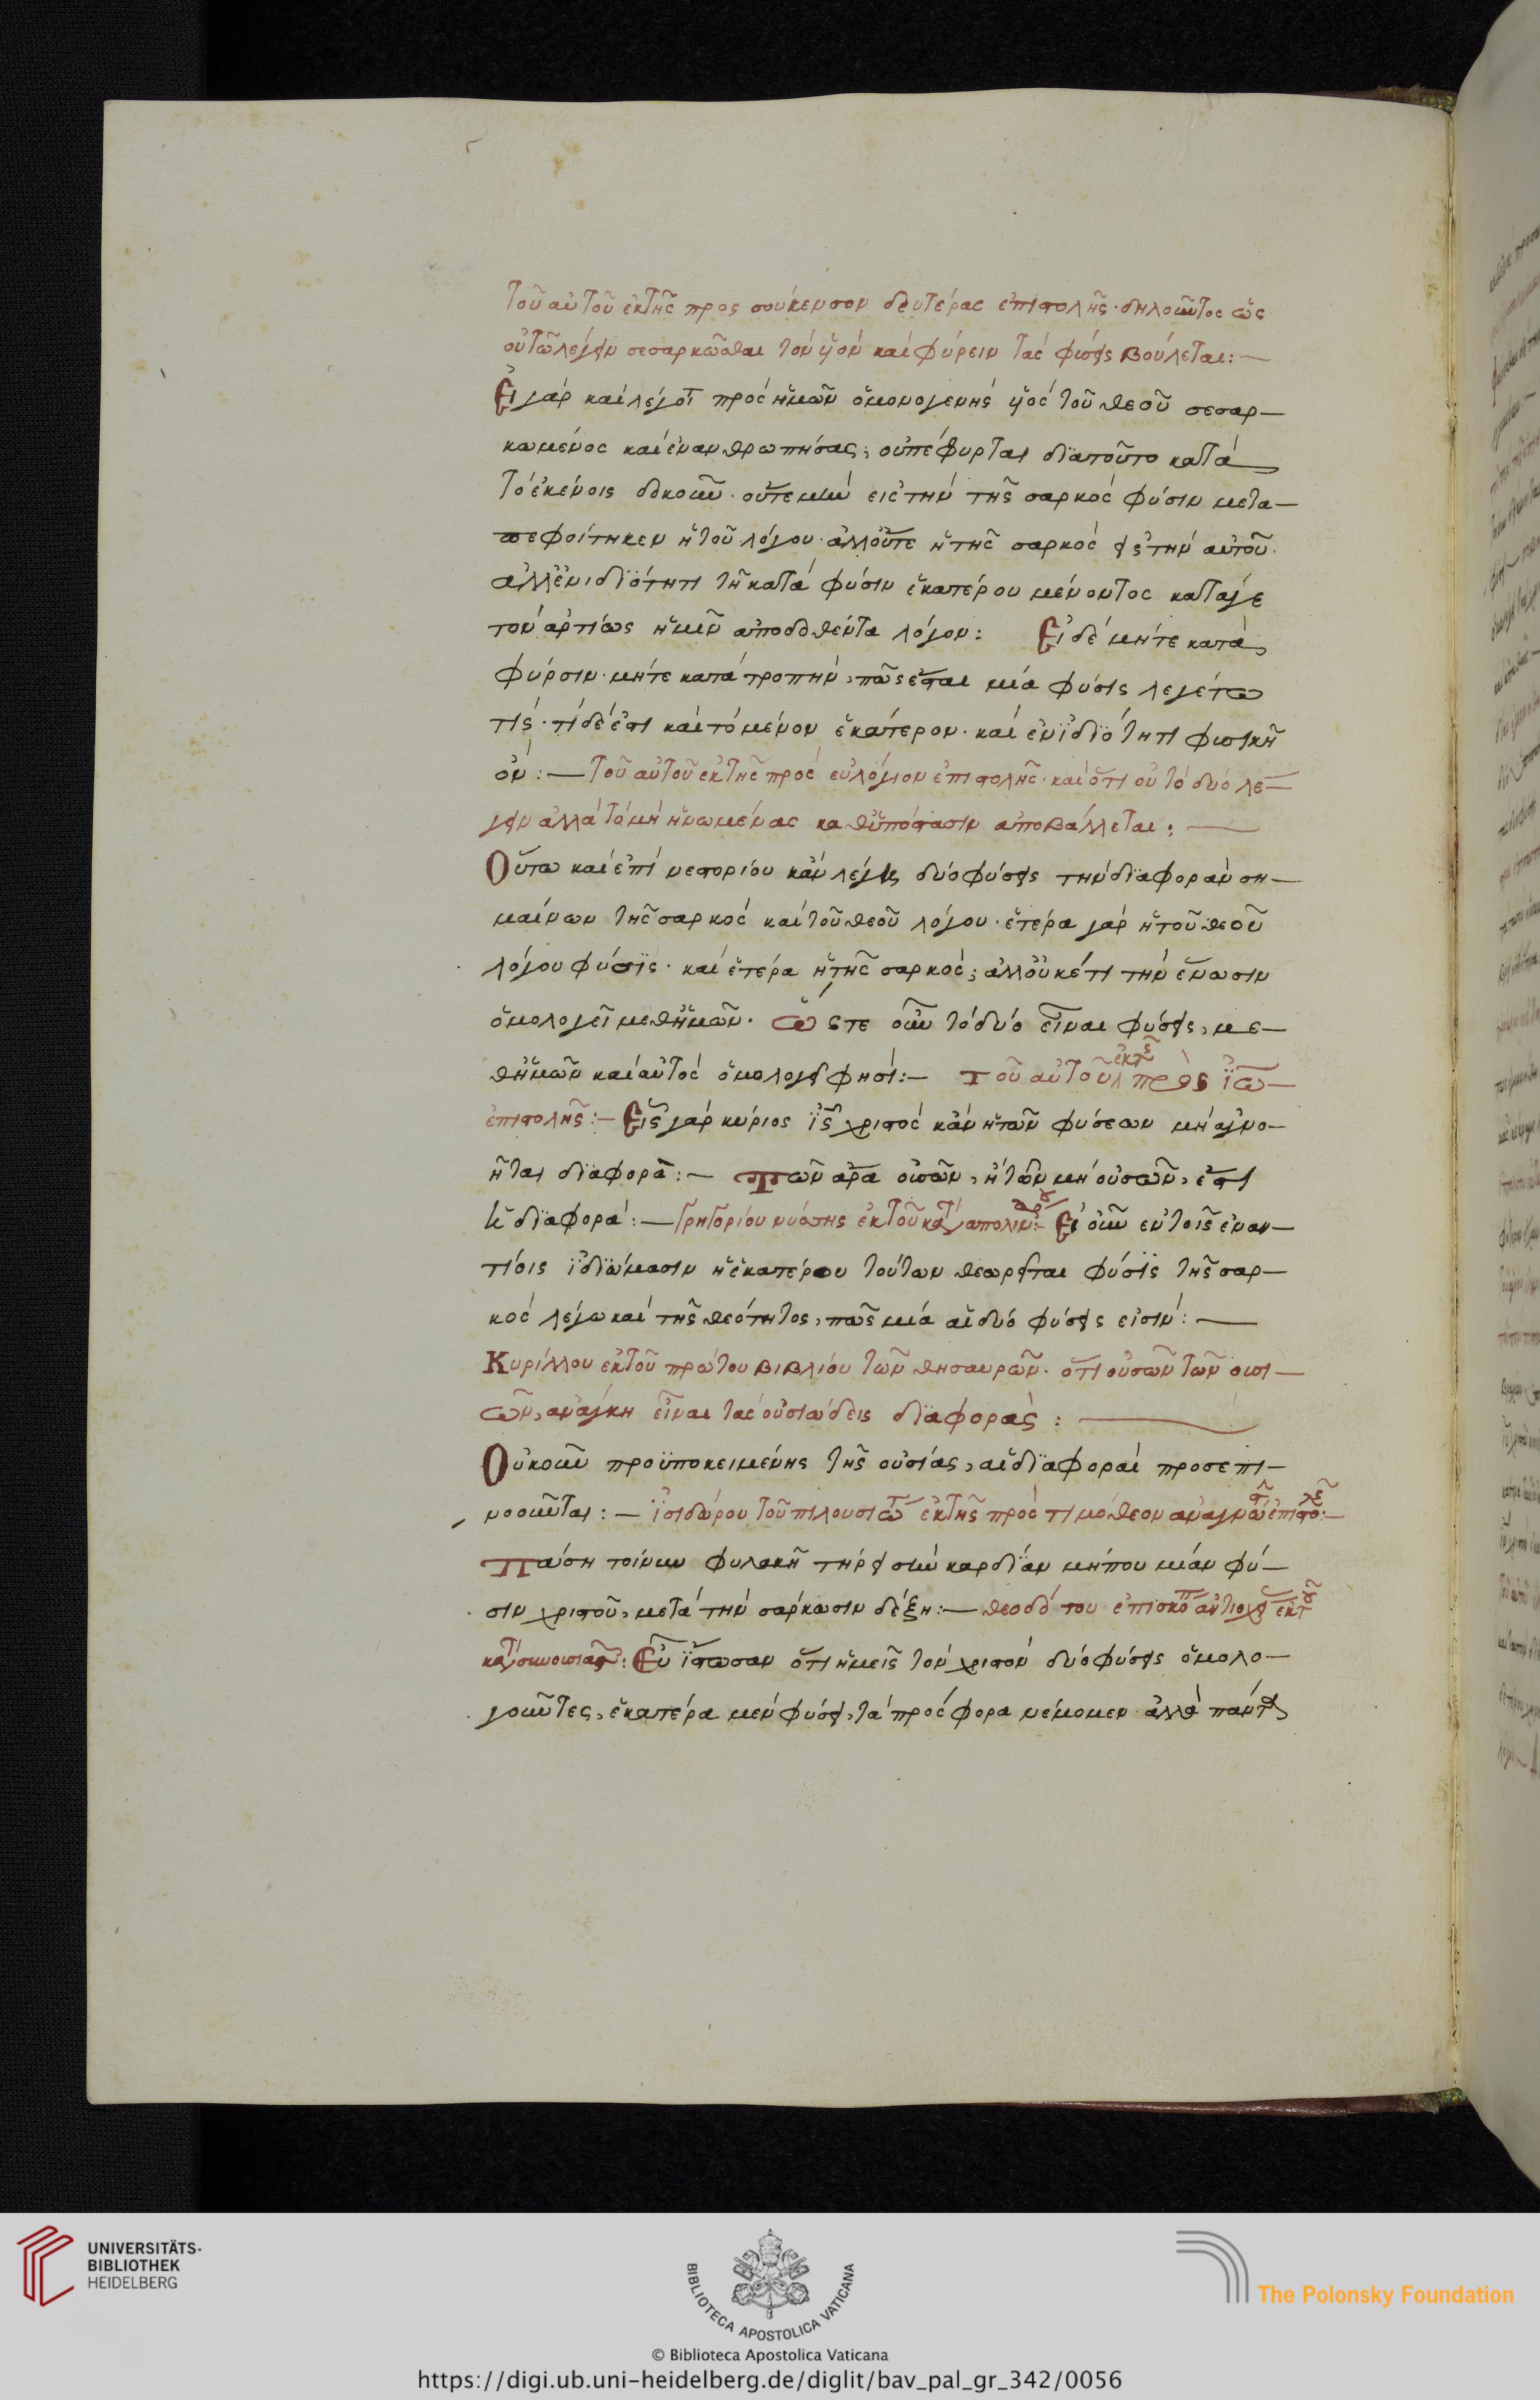 Τοῦ αὐτοῦ ἐκτῆς προς σούκενσον δευτέρας ἐπιστολῆς · δηλοῦντος ὡς
οὐ τῶ λέγειν σεσαρκῶσθαι τὸν υἱὸν καὶ φύρειν τὰς φύσεις βούλεται : —
Εἰ γὰρ καὶ λέγοι το πρὸς ἡμῶν ὁ μονογενὴς υἱὸς τοῦ θεοῦ σεσαρ—
κωμένος καὶ ἐνανθρωπήσας, οὐ πέφυρται διατοῦτο κατὰ
τὸ ἐκείνοις δοκοῦν · οὔτε μὴν εἰς τὴν τῆς σαρκὸς φύσιν μετα—
πεφοίτηκεν ἡ τοῦ λόγου · ἀλλ οὔτε ἡ τῆς σαρκὸς εἰς τὴν αὐτοῦ ·
ἀλλ ἐν ἰδιότητι τῆ κατὰ φύσιν ἑκατέρου μένοντος κατά γε
τὸν ἀρτίως ἡμῖν ἀποδοθέντα λόγον : Εἰ δὲ μήτε κατὰ
φύρσιν · μήτε κατὰ τροπὴν, πῶς ἔσται μία φύσις λεγέτω
τίς · τί δέ ἐστι καὶ τὸ μένον ἑκάτερον · καὶ ἐν ἰδιότητι φυσικῆ
ὄν : — τοῦ αὐτοῦ ἐκτῆς πρὸς εὐλόγιον ἐπιστολῆς · καὶ ὅτι οὐ τὸ δύο λέ—
γειν ἀλλὰ τὸ μὴ ἡνωμένας καθ ὑπόστασιν ἀποβάλλεται : —
Οὕτω καὶ ἐπὶ νεστορίου κἂν λέγῃ δύο φύσεις τὴν διαφορὰν ση—
μαίνων τῆς σαρκὸς καὶ τοῦ θεοῦ λόγου · ἑτέρα γὰρ ἡ τοῦ θεοῦ
λόγου φύσις · καὶ ἑτέρα ἡ τῆς σαρκός, ἀλλ οὐκέτι τὴν ἕνωσιν
ὁμολογεῖ μεθ ἡμῶν · Ὥστε οὖν τὸ δύο εἶναι φύσεις, με—
θ ἡμῶν καὶ αὐτὸς ὁμολογεῖ φησί : — Τοῦ αὐτοῦ ἐκτ πρὸς ἰω—
ἐπιστολῆς : — Εἷς γὰρ κύριος ἰς χριστὸς κἂν ἡ τῶν φύσεων μὴ ἀγνο—
ῆται διαφορά : — Τῶν ἄρα οὐσῶν, ἢ τῶν μὴ οὐσῶν, ἐστι
ἡ διαφορά : — Γρηγορίου νύσσης ἐκ τοῦ κατὰ απολιν : — Εἰ οὖν ἐν τοῖς ἐναν—
τίοις ἰδιώμασιν ἡ ἑκατέρου τούτων θεωρεῖται φύσις τῆς σαρ—
κὸς λέγω καὶ τῆς θεότητος, πῶς μία αἱ δύο φύσεις εἰσίν : —
Κυρίλλου ἐκ τοῦ πρώτου βιβλίου τῶν θησαυρῶν · ὅτι οὐσῶν τῶν οὐσι—
ῶν, ἀνάγκη εἶναι τὰς οὐσιώδεις διαφοράς : —
Οὐκοῦν προϋποκειμένης τῆς οὐσίας, αἱ διαφοραὶ προσεπι—
νοοῦνται : — ἰσιδώρου τοῦ πιλουσιωτ ἐκ τῆς πρὸς τιμόθεον ἀναγνώστ ἐπιστολῆς : —
Πάση τοίνυν φυλακῆ τήρει σὴν καρδίαν μήπου μίαν φύ—
σιν χριστοῦ, μετὰ τὴν σάρκωσιν δέξη : — θεοδότου ἐπισκόπ ἀντιοχεί ἐκ τοῦ
κατὰ συνουσιαστ : Εὖ ἴστωσαν ὅτι ἡμεῖς τὸν χριστὸν δύο φύσεις ὁμολο—
γοῦντες, ἑκατέρα μὲν φύσει, τὰ πρόσφορα νέμομεν · ἀλλὰ πάντ
UNIVERSITÄTS-
BIBLIOTHEK
HEIDELBERG
BIBLIOTECA APOSTOLICA VATICANA
The Polonsky Foundation
© Biblioteca Apostolica Vaticana
https://digi.ub.uni-heidelberg.de/diglit/bav_pal_gr_342/0056